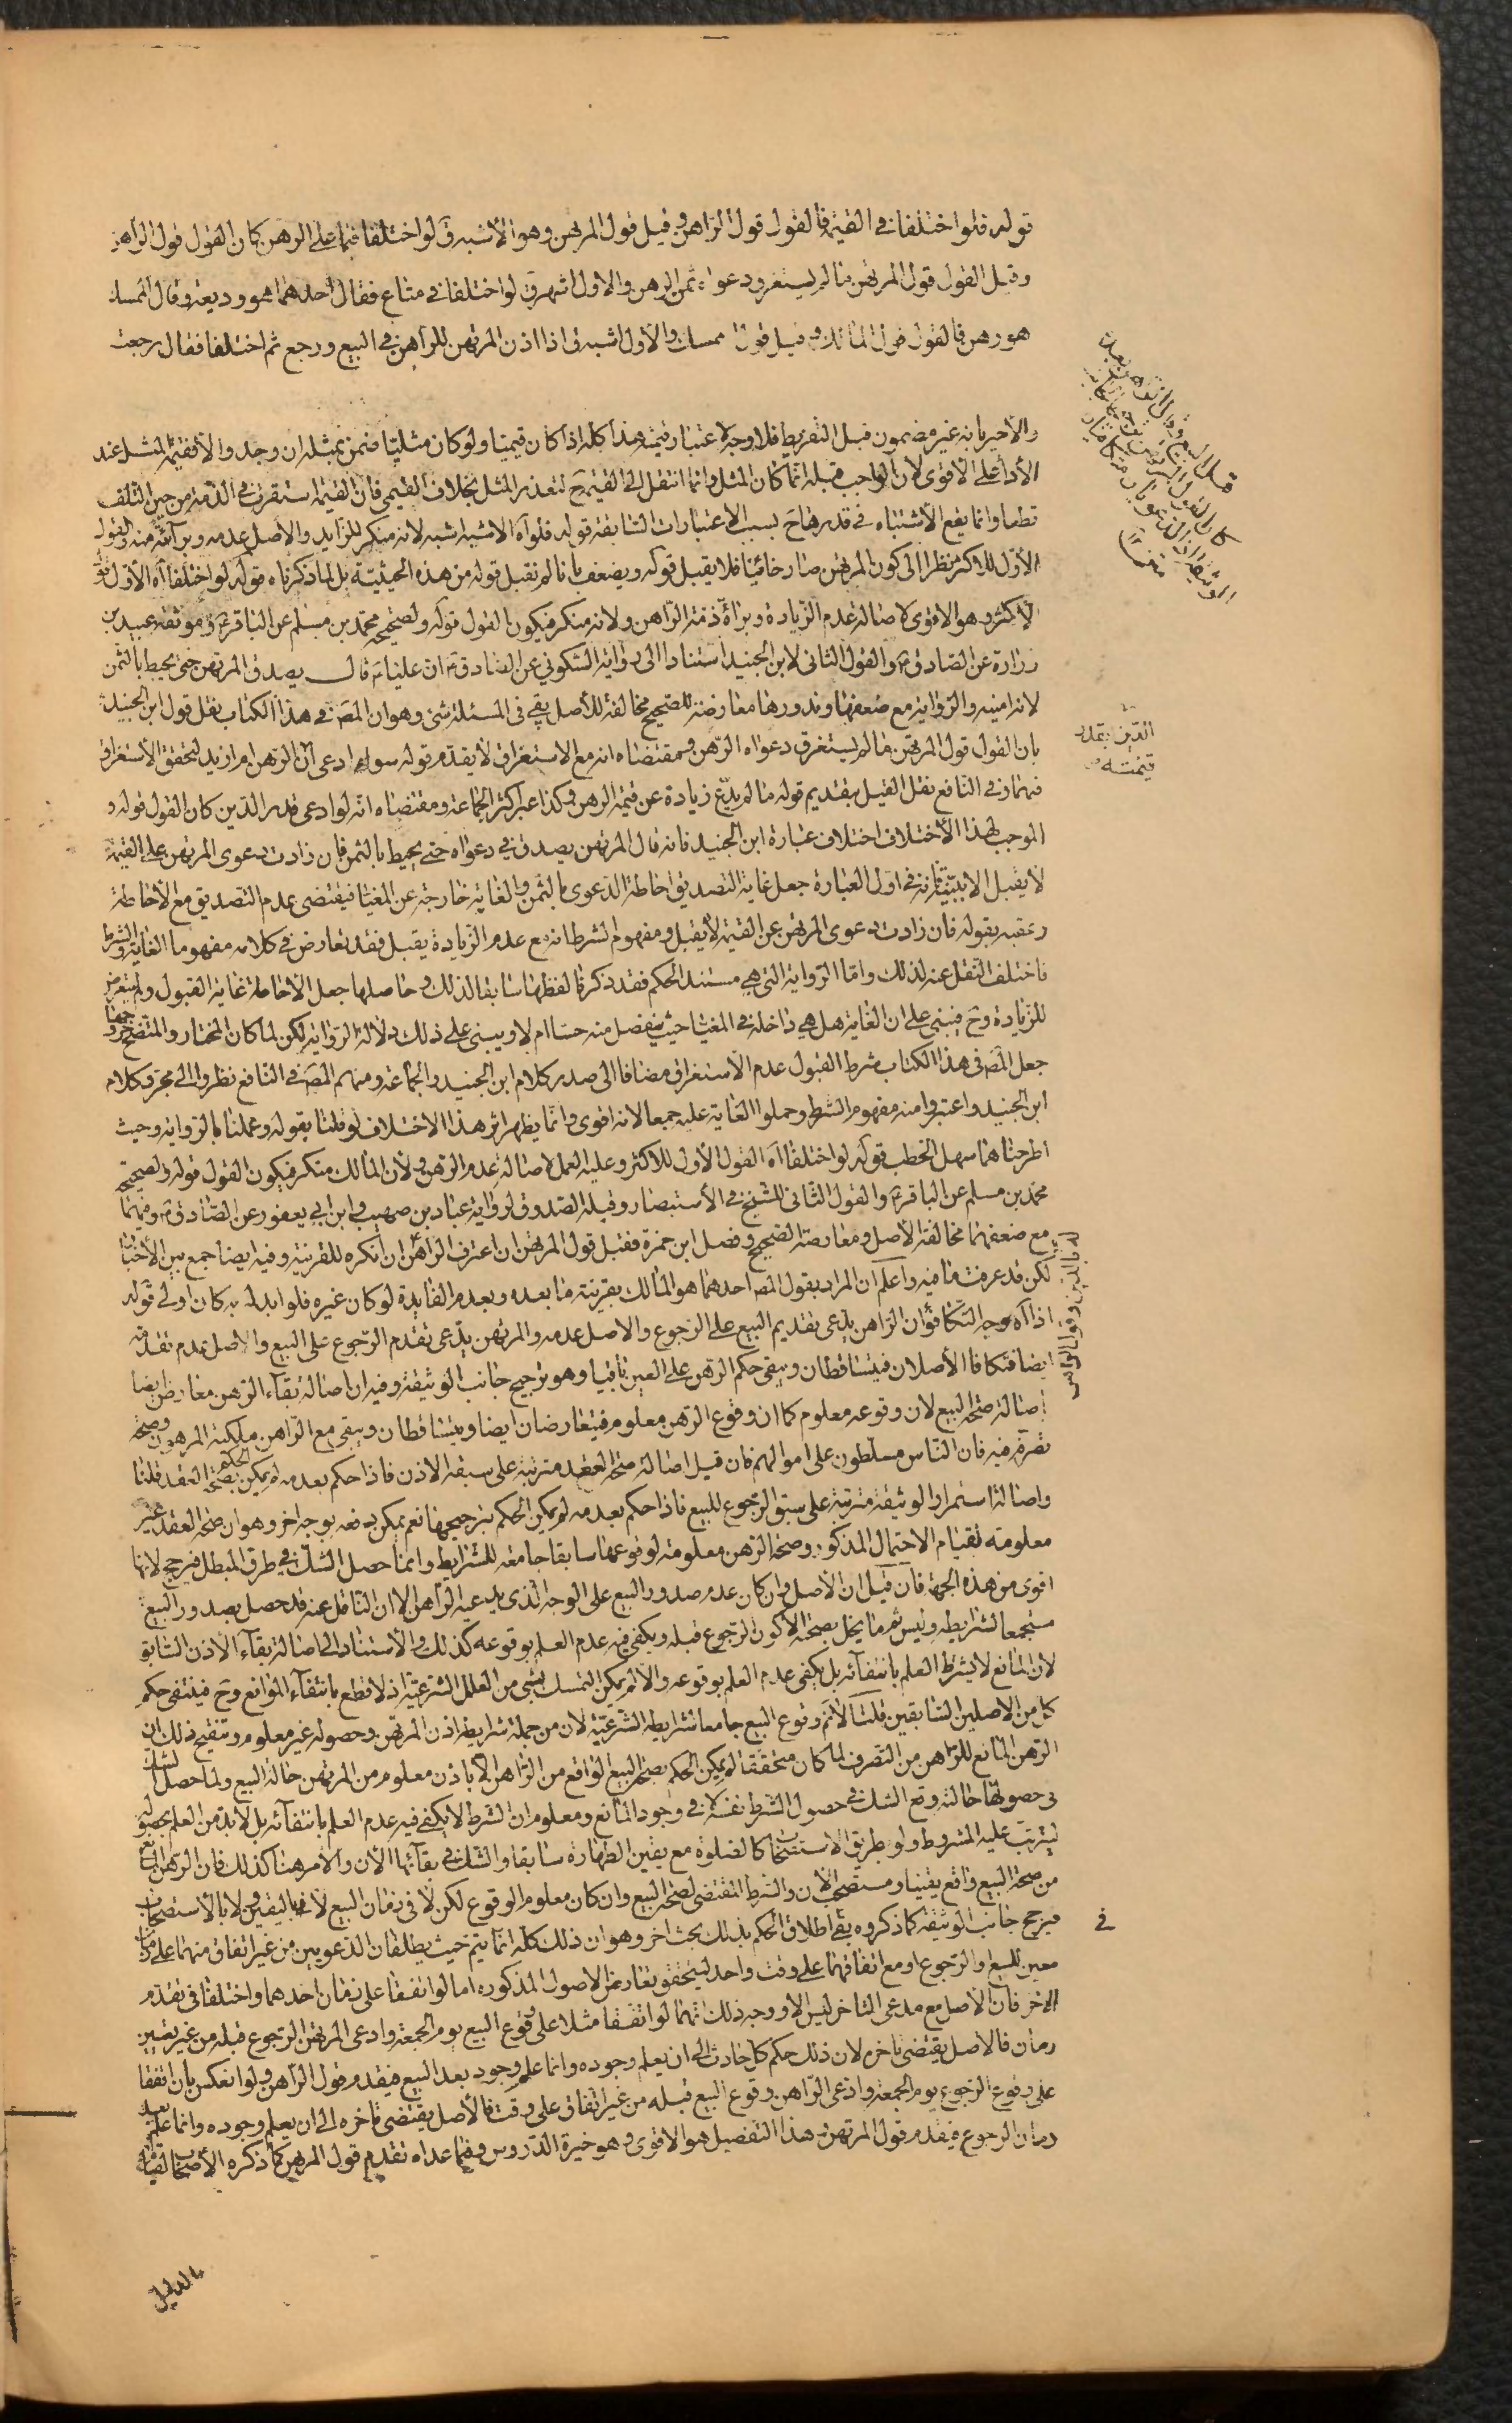 قوله فلو اختلفا في القيمة فالقول قول الراهن وقيل قول المرتهن وهو الأشبه ق لو اختلفا فيما على الرهن كان القول قول الراهن
وقيل القول قول المرتهن ما لم يستغرق دعواه ثمن الرهن والاول اشهر ق لو اختلفا في متاع فقال احدهما هو وديعة وقال الممسك
هو رهن فالقول قول المالك وقيل قول الممسك والأول اشبه ق اذا اذن المرتهن للراهن في البيع ورجع ثم اختلفا فقال رجعت
قبل البيع وقال الراهن بعده
كان القول قول المرتهن ترجيحا لجانب
الوثيقة اذ الدعويان متكافيان
والأخير بانه غير مضمون قبل التفريط فلا وجه لاعتبار قيمته هذا كله اذا كان قيميا ولو كان مثليا ضمن بمثله ان وجد والا فقيمة المثل عند
الأداء على الأقوى لأن الواجب قبله انما كان المثل وانما انتقل الى القيمة ح لتعذر المثل بخلاف القيمي فان القيمة استقرت في الذمة من حين التلف
قطعا وانما يقع الأشتباه في قدرها ح بسبب الاعتبارات السابقة قوله فلو آه الاشبه اشبه لانه منكر للزايد والأصل عدمه وبرآئته منه والقول
الأول للأكثر نظرا الى كون المرتهن صار خائنا فلا يقبل قوله ويضعف بانا لم نقبل قوله من هذه الحيثية بل لما ذكرناه قوله لو اختلفا آه الأول قول
الاكثر وهو الاقوى لاصالة عدم الزيادة وبراءة ذمة الراهن ولانه منكر فيكون القول قوله ولصحيحة محمد بن مسلم عن الباقر ع وموثقة عبيد بن
زرارة عن الصادق ع والقول الثاني لابن الجنيد استنادا الى رواية السكوني عن الصادق ع ان عليا ع قال يصدق المرتهن حتى يحيط بالثمن
لانه امينه والرواية مع ضعفها وندورها معارضة للصحيح مخالفة للأصل بقي في المسئلة شئ وهو ان المص في هذا الكتاب نقل قول ابن الجنيد
بان القول قول المرتهن ما لم يستغرق دعواه الرهن ومقتضاه انه مع الاستغراق لا يقدم قوله سواء ادعى ان الرهن ام ازيد لتحقق الأستغراق
فيهما وفي النافع نقل القيل بتقديم قوله ما لم يدع زيادة عن قيمة الرهن وكذا عبر اكثر الجماعة ومقتضاه انه لو ادعى قدر الدين كان القول قوله و
الدين بقدر
قيمته
الموجب لهذا الأختلاف اختلاف عبارة ابن الجنيد فانه قال المرتهن يصدق في دعواه حتى يحيط بالثمن فان زادت دعوى المرتهن على القيمة
لا يقبل الا ببينة فانه في اول العبارة جعل غاية التصديق احاطة الدعوى بالثمن والغاية خارجة عن المغيا فيقتضى عدم التصديق مع الأحاطة
وعقبه بقوله فان زادت دعوى المرتهن عن القيمة لا يقبل ومفهوم الشرط انه مع عدم الزيادة يقبل فقد تعارض في كلامه مفهوما الغاية والشرط
فاختلف النقل عنه لذلك واما الرواية التي هي مستند الحكم فقد ذكرنا لفظها سابقا لذلك وحاصلها جعل الأحاطة غاية القبول ولم يتعرض
للزيادة وح فيبنى على ان الغاية هل هي داخلة في المغيا حيث ينفصل منه حسا ام لا ويبنى على ذلك دلالة الرواية لكن لما كان المختار والمتضح خروجها
جعل المص في هذا الكتاب شرط القبول عدم الأستغراق مضافا الى صدر كلام ابن الجنيد والجماعة ومنهم المص في النافع نظروا الى مجرد كلام
ابن الجنيد واعتبروا منه مفهوم الشرط وحملوا الغاية عليه جمعا لانه اقوى وانما يظهر اثر هذا الاختلاف لو قلنا بقوله وعملنا بالرواية وحيث
اطرحناهما سهل الخطب قوله لو اختلفا آه القول الأول للأكثر وعليه العمل لاصالة عدم الرهن ولأن المالك منكر فيكون القول قوله ولصحيحة
محمد بن مسلم عن الباقر ع والقول الثاني للشيخ في الأستبصار وقبله الصدوق لرواية عباد بن صهيب وابن ابي يعفور عن الصادق ع وفيهما
مع ضعفهما مخالفة الأصل ومعارضة الصحيح وفصل ابن حمزة فقبل قول المرتهن ان اعترف الراهن له بالدين وقول الراهن ان انكره للقرينة وفيه ايضا جمع بين الأخبار
لكن قد عرفت ما فيه واعلم ان المراد بقول المص احدهما هو المالك بقرينة ما بعده وبعدم الفايدة لو كان غيره فلو ابدله به كان اولى قوله
اذا آه وجه التكافؤ ان الراهن يدعى تقديم البيع على الرجوع والاصل عدمه والمرتهن يدعى تقدم الرجوع على البيع والاصل عدم تقدمه
ايضا فتكافا الأصلان فيتساقطان ويبقى حكم الرهن على العين باقيا وهو ترجيح جانب الوثيقة وفيه ان اصالة بقاء الرهن معارض ايضا
اصالة صحة البيع لان وقوعه معلوم كما ان وقوع الرهن معلوم فيتعارضان ايضا ويتساقطان ويبقى مع الراهن ملكية المرهون وصحة
تصرفه فيه فان الناس مسلطون على اموالهم فان قيل اصالة صحة العقد مترتبة على سبقه الاذن فاذا حكم بعدمه لم يمكن الحكم بصحة العقد قلنا
واصالة استمرار الوثيقة مترتبة على سبق الرجوع للبيع فاذا حكم بعدمه لم يمكن الحكم بترجيحها نعم يمكن دفعه بوجه اخر وهو ان صحة العقد غير
معلومة لقيام الاحتمال المذكور وصحة الرهن معلومة لوقوعها سابقا جامعة للشرايط وانما حصل الشك في طرق المبطل فيرجح لانها
اقوى من هذه الجهة فان قيل ان الأصل وان كان عدم صدور البيع على الوجه الذي يدعيه الراهن الا ان الناقل عنه قد حصل بصدور البيع
مستجمعا لشرايطه وليس ثم ما يخل بصحته الا كون الرجوع قبله ويكفى فيه عدم العلم بوقوعه كذلك والأستناد الى اصالة بقاء الأذن السابق
لان المانع لا يشترط العلم بانتفائه بل يكفى عدم العلم بوقوعه والا لم يمكن التمسك بشئ من العلل الشرعية اذ لا قطع بانتفاء الموانع وح فينتفى حكم
كل من الاصلين السابقين قلنا لا نم وقوع البيع جامعا لشرايطه الشرعية لان من جملة شرايطه اذن المرتهن وحصوله غير معلوم وتنقيح ذلك ان
الرهن المانع للراهن من التصرف لما كان متحققا لم يمكن الحكم بصحة البيع الواقع من الراهن الا باذن معلوم من المرتهن حالة البيع ولما حصل الشك
في حصولها حالته وقع الشك في حصول الشرط نفسه لا في وجود المانع ومعلوم ان الشرط لا يكفى فيه عدم العلم بانتفائه بل لا بد من العلم بحصوله
ليترتب عليه المشروط ولو بطريق الاستصحاب كالصلوة مع يقين الطهارة سابقا والشك في بقائها الأن والأمر هنا كذلك فان الرهن المانع
من صحة البيع واقع يقينا ومستصحب الأن والشرط المقتضى لصحة البيع وان كان معلوم الوقوع لكن لا في زمان البيع لا باليقين ولا بالأستصحاب
فيرجح جانب الوثيقة كما ذكروه بقى في اطلاق الحكم بذلك بحث اخر وهو ان ذلك كله انما يتم حيث يطلقان الدعويين من غير اتفاق منهما على زمان
معين للبيع والرجوع او مع اتفاقهما على وقت واحد ليتحقق تعارض الاصول المذكورة اما لو اتفقا على زمان احدهما واختلفا في تقدم
الاخر فان الأصل مع مدعى التاخر ليس الا ووجه ذلك انهما لو اتفقا مثلا على وقوع البيع يوم الجمعة وادعى المرتهن الرجوع قبله من غير تعيين
زمان فالاصل يقتضى تاخره لان ذلك حكم كل حادث الى ان يعلم وجوده وانما علم وجوده بعد البيع فيقدم قول الراهن ولو انعكس بان اتفقا
على وقوع الرجوع يوم الجمعة وادعى الراهن وقوع البيع قبله من غير اتفاق على وقت فالأصل يقتضى تاخره الى ان يعلم وجوده وانما علم بعد
زمان الرجوع فيقدم قول المرتهن وهذا التفصيل هو الاقوى وهو خيرة الدروس وفيما عداه تقدم قول المرتهن كما ذكره الأصحاب لقيام
الدليل